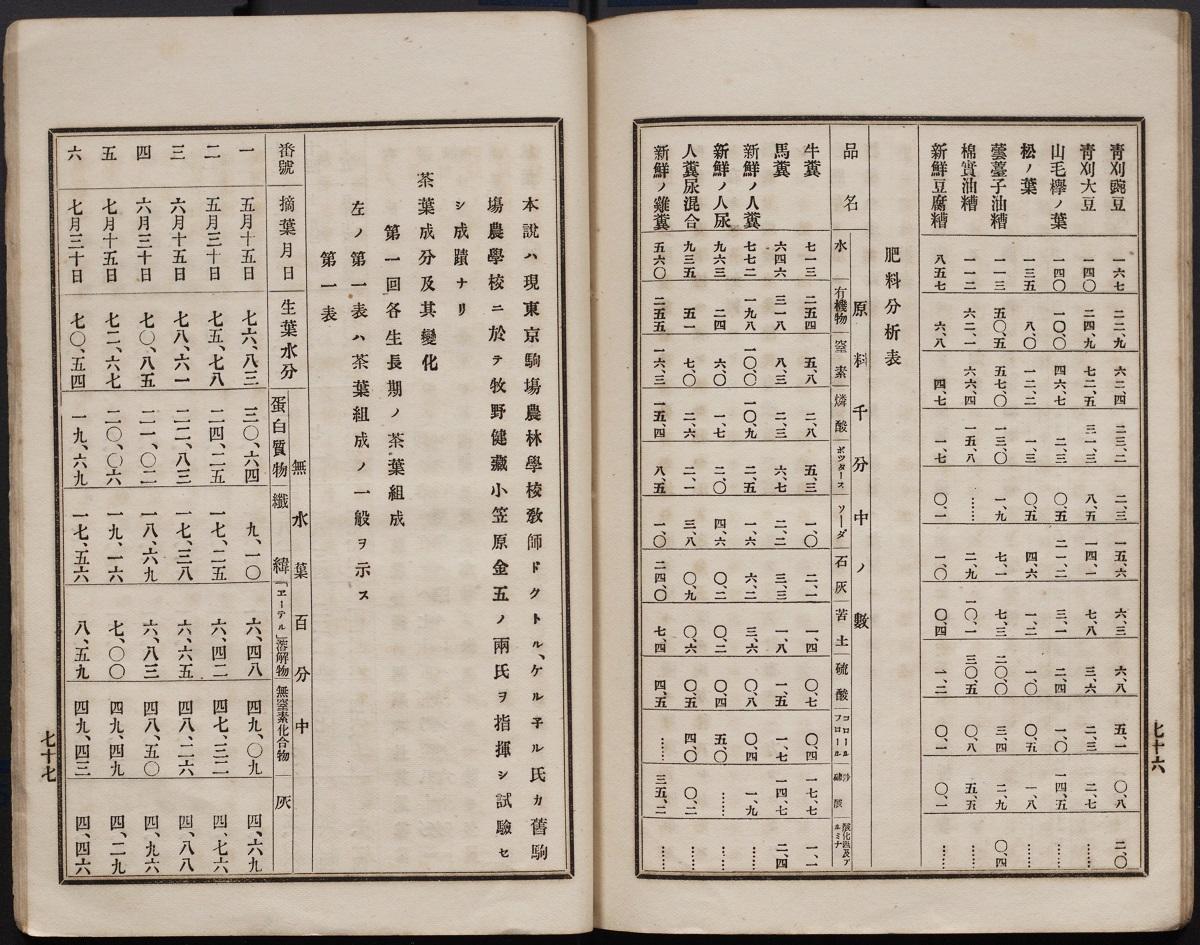 七十六
青刈豌豆 一六七 二二、九 六二、四 二三、二 二、三 一五、六 六、三 六、八 五、一 〇、八 二、〇
青刈大豆 一四〇 二四九 七二、五 三一、三 八、五 一四、一 七、八 三、六 二、三 二、七 ……
山毛欅ノ葉 一四〇 一〇〇 四六、七 二、三 〇、五 二一、二 三、一 二、四 一、〇 一四、五 ……
松ノ葉 一三五 八、〇 一二、二 一、三 〇、五 四、六 一、二 一、〇 〇、五 一、八 ……
蕓薹子油糟 一一三 五〇、五 五七、〇 一三、〇 一、九 七、一 七、三 二〇〇 三、四 二、九 〇、四
棉實油糟 一一二 六二、一 六六、四 一五、八 …… 二、九 一〇、一 三〇、五 〇、八 五、五 ……
新鮮豆腐糟 八五七 六、八 四、七 一、七 〇、一 一、〇 〇、四 一、二 〇、一 〇、一 ……
肥料分析表
原料千分中ノ數
品名 水 有機物 窒素 燐酸 ポツタース ソーダ 石灰 苦土 硫酸 コロールフロロール 沙礦酸 酸化鐵及アルミナ
牛糞 七一三 二五四 五、八 二、八 五、三 一、〇 二、一 一、四 〇、七 〇、四 一七、七 一、一
馬糞 六四六 三一八 八、三 二、三 六、七 二、二 三、三 一、八 一、五 一、七 一四、七 二、四
新鮮ノ人糞 七七二 一九八 一〇〇 一〇、九 二、五 一、六 六、二 三、六 〇、八 〇、四 一、九 ……
新鮮ノ人尿 九六三 二四 六、〇 一、七 二、〇 四、六 〇、二 〇、二 〇、四 五、〇 …… ……
人糞尿混合 九三五 五一 七、〇 二、六 二、一 三、八 〇、九 〇、六 〇、五 四、〇 〇、二 ……
新鮮ノ雞糞 五六〇 二五五 一六、三 一五、四 八、五 一、〇 二四、〇 七、四 四、五 …… 三五、二 ……
本說ハ現東京駒塲農林學校敎師ドクトル、ケル子ル氏カ舊駒
塲農學校ニ於テ牧野健藏小笠原金五ノ兩氏ヲ指揮シ試驗セ
シ成蹟ナリ
茶葉成分及其變化
第一回各生長期ノ茶葉組成
左ノ第一表ハ茶葉組成ノ一般ヲ示ス
第一表
無水葉百分中
番號 摘葉月日 生葉水分 蛋白質物 纖緯 「エーテル」溶解物 無窒素化合物 灰
一 五月十五日 七六、八三 三〇、六四 九、一〇 六、四八 四九、〇九 四、六九
二 五月三十日 七五、七八 二四、二五 一七、二五 六、四二 四七、三二 四、七六
三 六月十五日 七八、六一 二二、八三 一七、三八 六、六五 四八、二六 四、八八
四 六月三十日 七〇、八五 二一、〇二 一八、六九 六、八三 四八、五〇 四、九六
五 七月十五日 七二、六七 二〇、〇六 一九、一六 七、〇〇 四九、四九 四、二九
六 七月三十日 七〇、五四 一九、六九 一七、五六 八、五九 四九、四三 四、四六
七十七